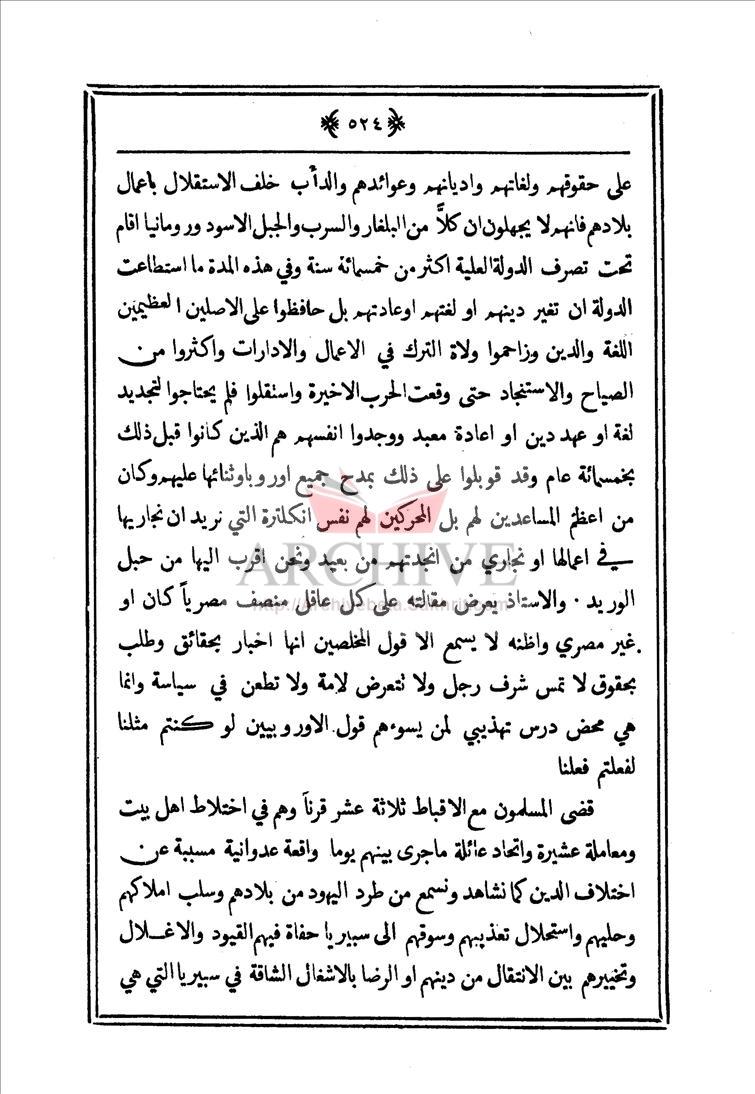 ﴿ ٥٢٤ ﴾
على حقوقهم ولغاتهم واديانهم وعوائدهم والدأب خلف الاستقلال باعمال
بلادهم فانهم لا يجهلون ان كلاًّ من البلغار والسرب والجبل الاسود ورومانيا اقام
تحت تصرف الدولة العلية اكثر من خمسمائة سنة وفي هذه المدة ما استطاعت
الدولة ان تغير دينهم او لغتهم او عادتهم بل حافظوا على الاصلين العظيمين
اللغة والدين وزاحموا ولاة الترك في الاعمال والادارات واكثروا من
الصياح والاستنجاد حتى وقعت الحرب الاخيرة واستقلوا فلم يحتاجوا لتجديد
لغة او عهد دين او اعادة معبد ووجدوا انفسهم هم الذين كانوا قبل ذلك
بخمسمائة عام وقد قوبلوا على ذلك بمدح جميع اوروبا وثنائها عليهم وكان
من اعظم المساعدين لهم بل المحركين لهم نفس انكلترة التي نريد ان نجاريها
في اعمالها او نجاري من انجدتهم من بعيد ونحن اقرب اليها من حبل
ARCHIVE
الوريد · والاستاذ يعرض مقالته على كل عاقل منصف مصرياً كان او
http://Archivebeta.Sakhrit.com
غير مصري واظنه لا يسمع الا قول المخلصين انها اخبار بحقائق وطلب
بحقوق لا تمس شرف رجل ولا تتعرض لامة ولا تطعن في سياسة وانما
هي محض درس تهذيبي لمن يسوءهم قول الاوروبيين لو كنتم مثلنا
لفعلتم فعلنا
قضى المسلمون مع الاقباط ثلاثة عشر قرناً وهم في اختلاط اهل بيت
ومعاملة عشيرة واتحاد عائلة ماجرى بينهم يوما واقعة عدوانية مسببة عن
اختلاف الدين كما نشاهد ونسمع من طرد اليهود من بلادهم وسلب املاكهم
وحليهم واستحلال تعذيبهم وسوقهم الى سبيريا حفاة فيهم القيود والاغلال
وتخييرهم بين الانتقال من دينهم او الرضا بالاشغال الشاقة في سبيريا التي هي